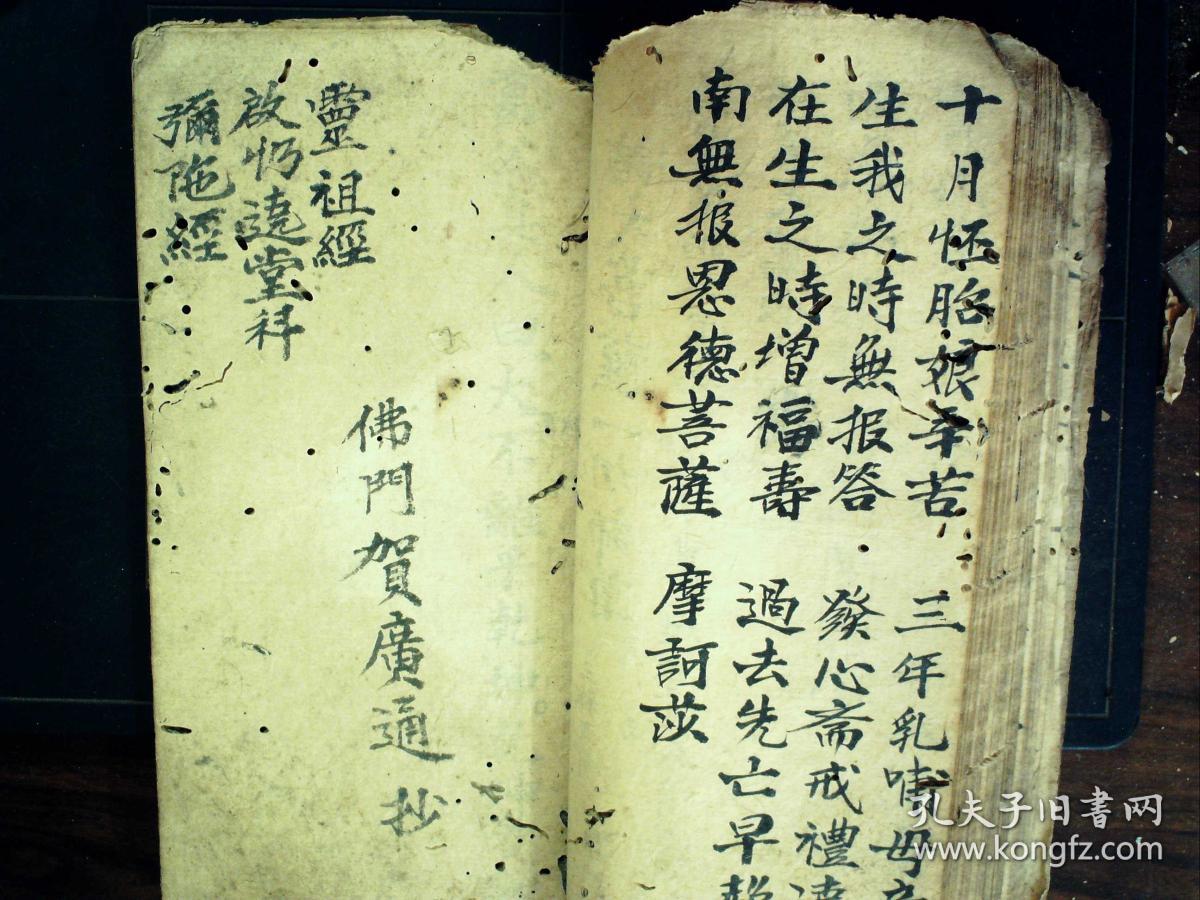 十月怀胎娘辛苦 三年乳哺母
生我之時無报答 發心斋戒禮
在生之時增福壽 過去先亡早
南無报恩德菩薩 摩訶莎
靈祖經
啟
遶堂科
彌陁經
佛門賀廣通抄
孔夫子旧书网
www.kongfz.com